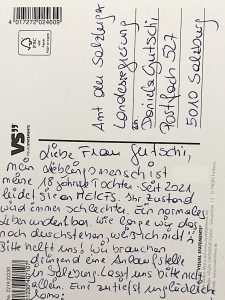 4 017272 024609
FSC
VS
Amt der Salzburger
Landesregierung
Daniela Gutschi
Postfach 527
5010 Salzburg
Liebe Frau Gutschi,
mein Lieblingsmensch ist
meine 18 jährige Tochter. Seit 2021
leidet sie an ME/CFS. Ihr Zustand
wird immer schlechter. Ein normales
Leben undenkbar. Wie lange wir das
noch durchstehen, weiß ich nicht!
Bitte helft uns! Wir brauchen
dringend eine Anlaufstelle
in Salzburg. Lasst uns bitte nicht
allein. Eine zutiefst unglückliche